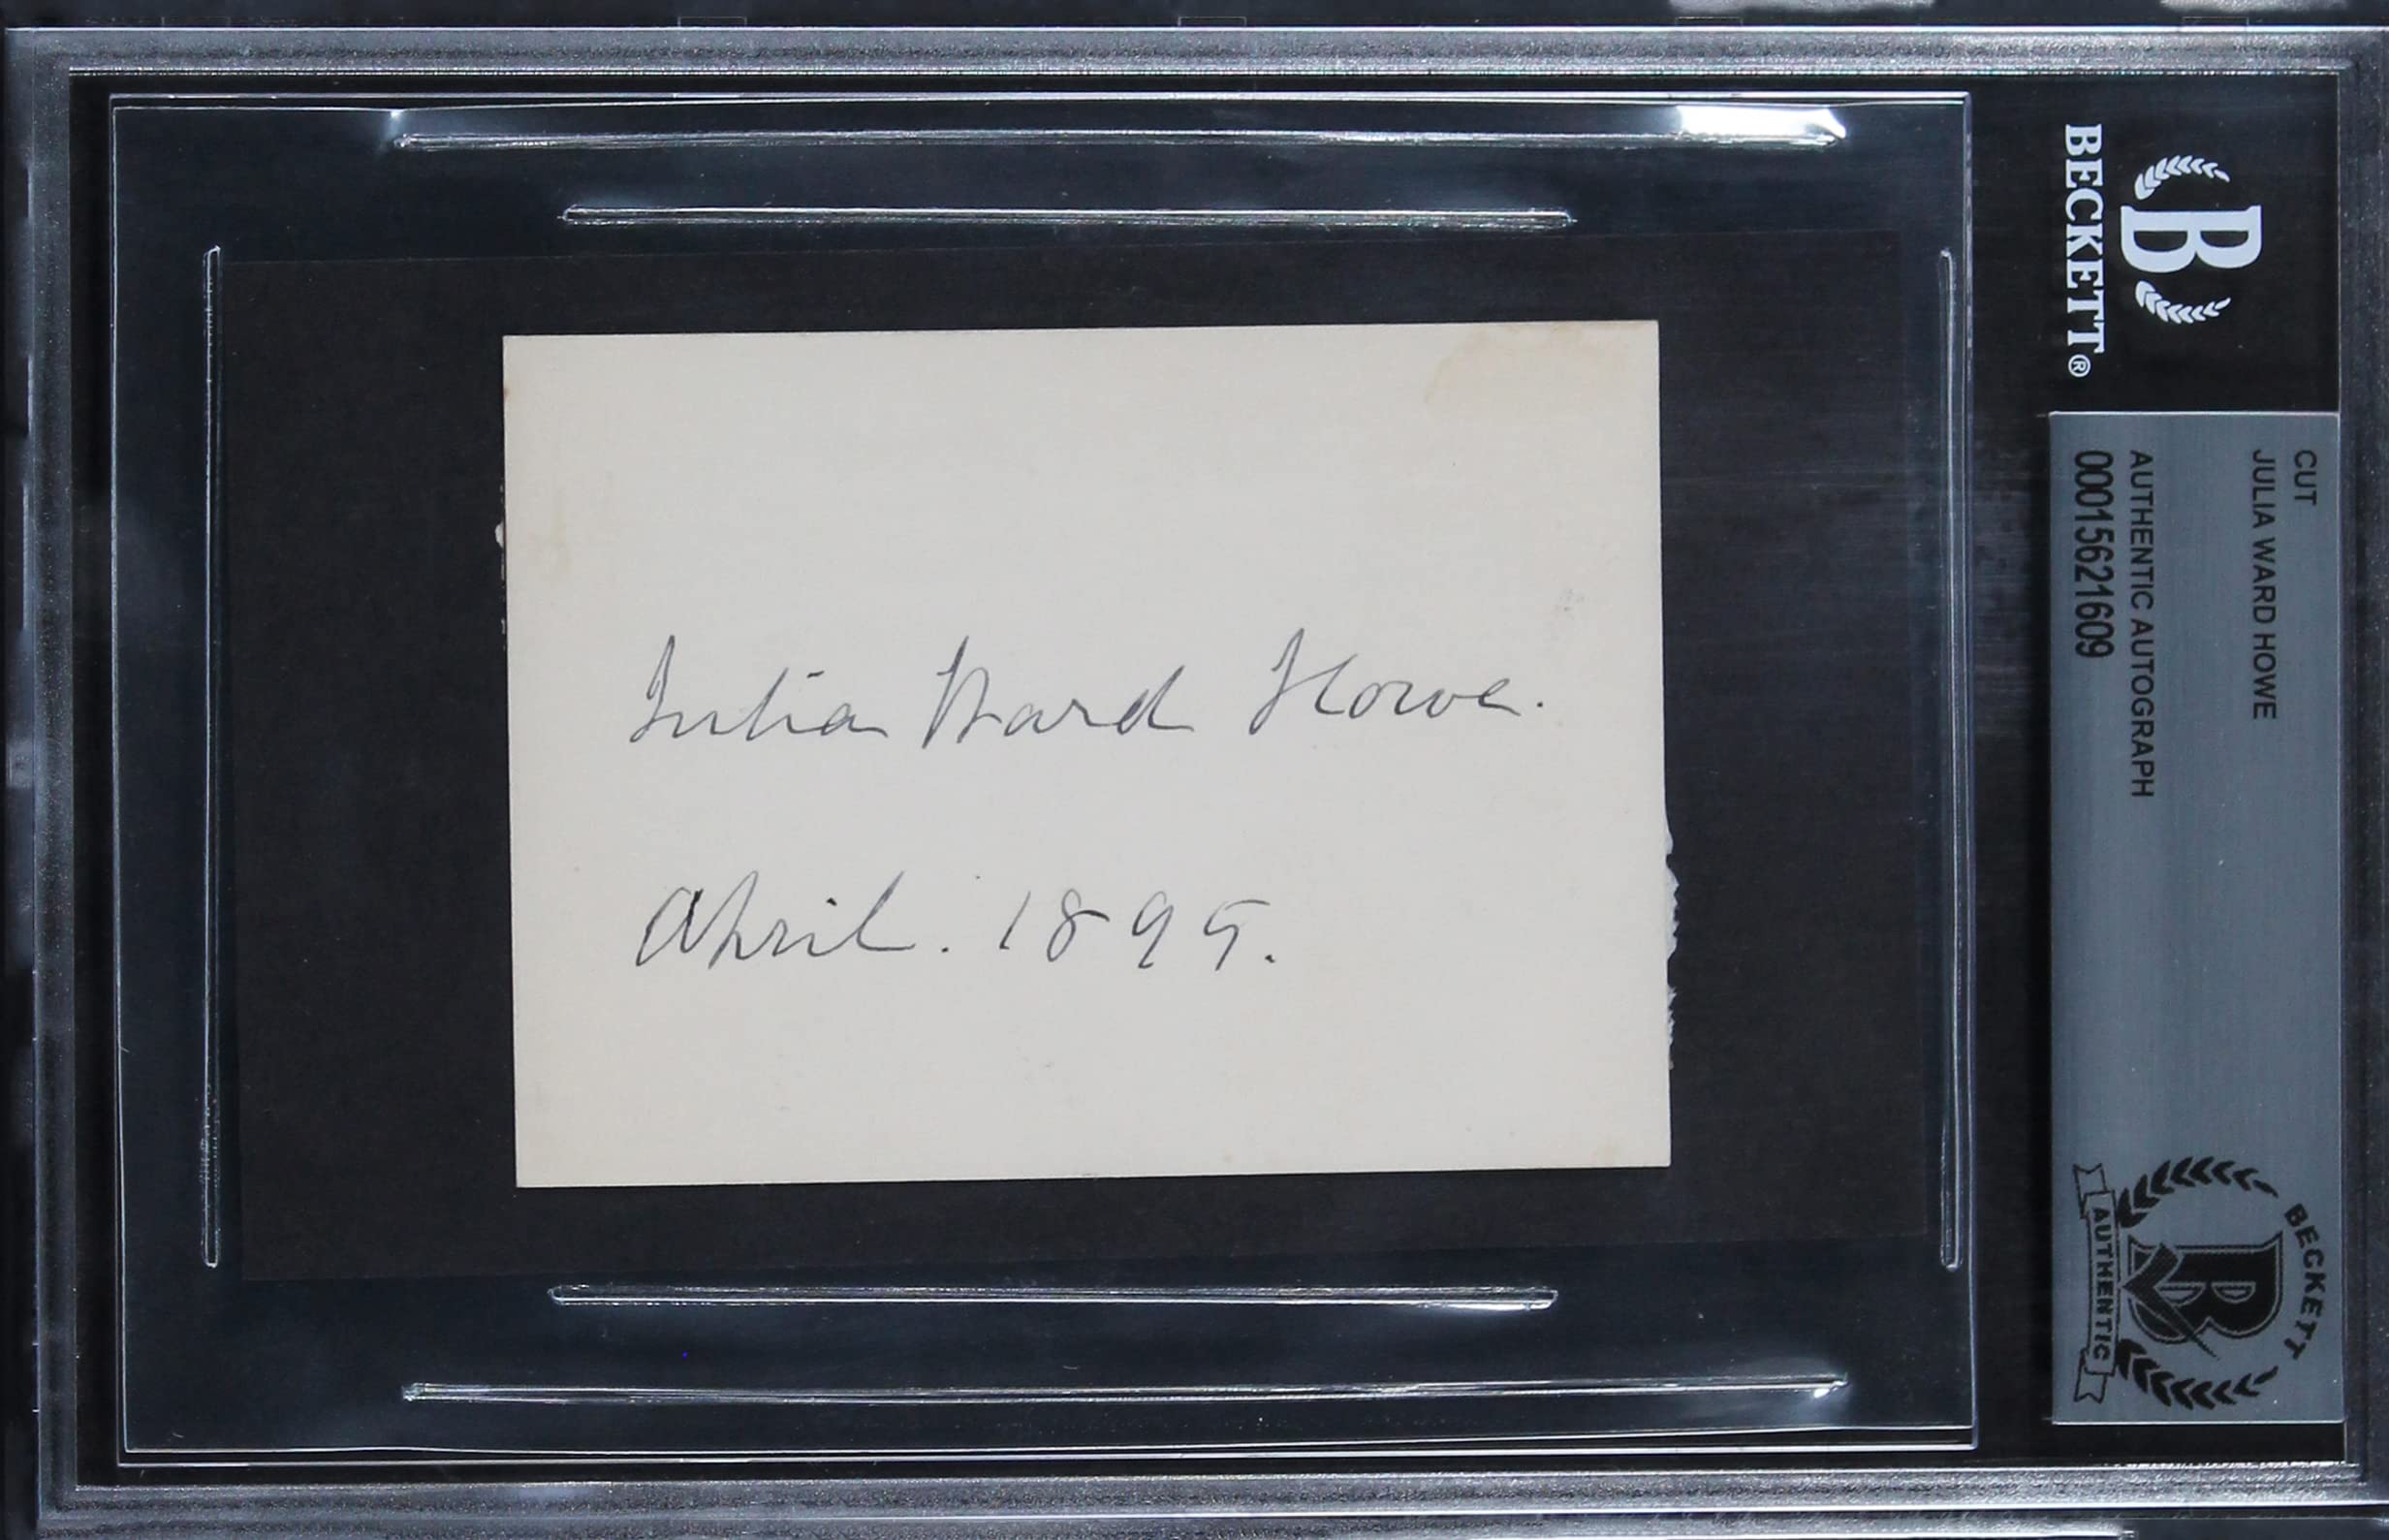 Julia Ward Howe.
April. 1895.
BECKETT®
CUT
JULIA WARD HOWE
AUTHENTIC AUTOGRAPH
00015621609
BECKETT
B
AUTHENTIC